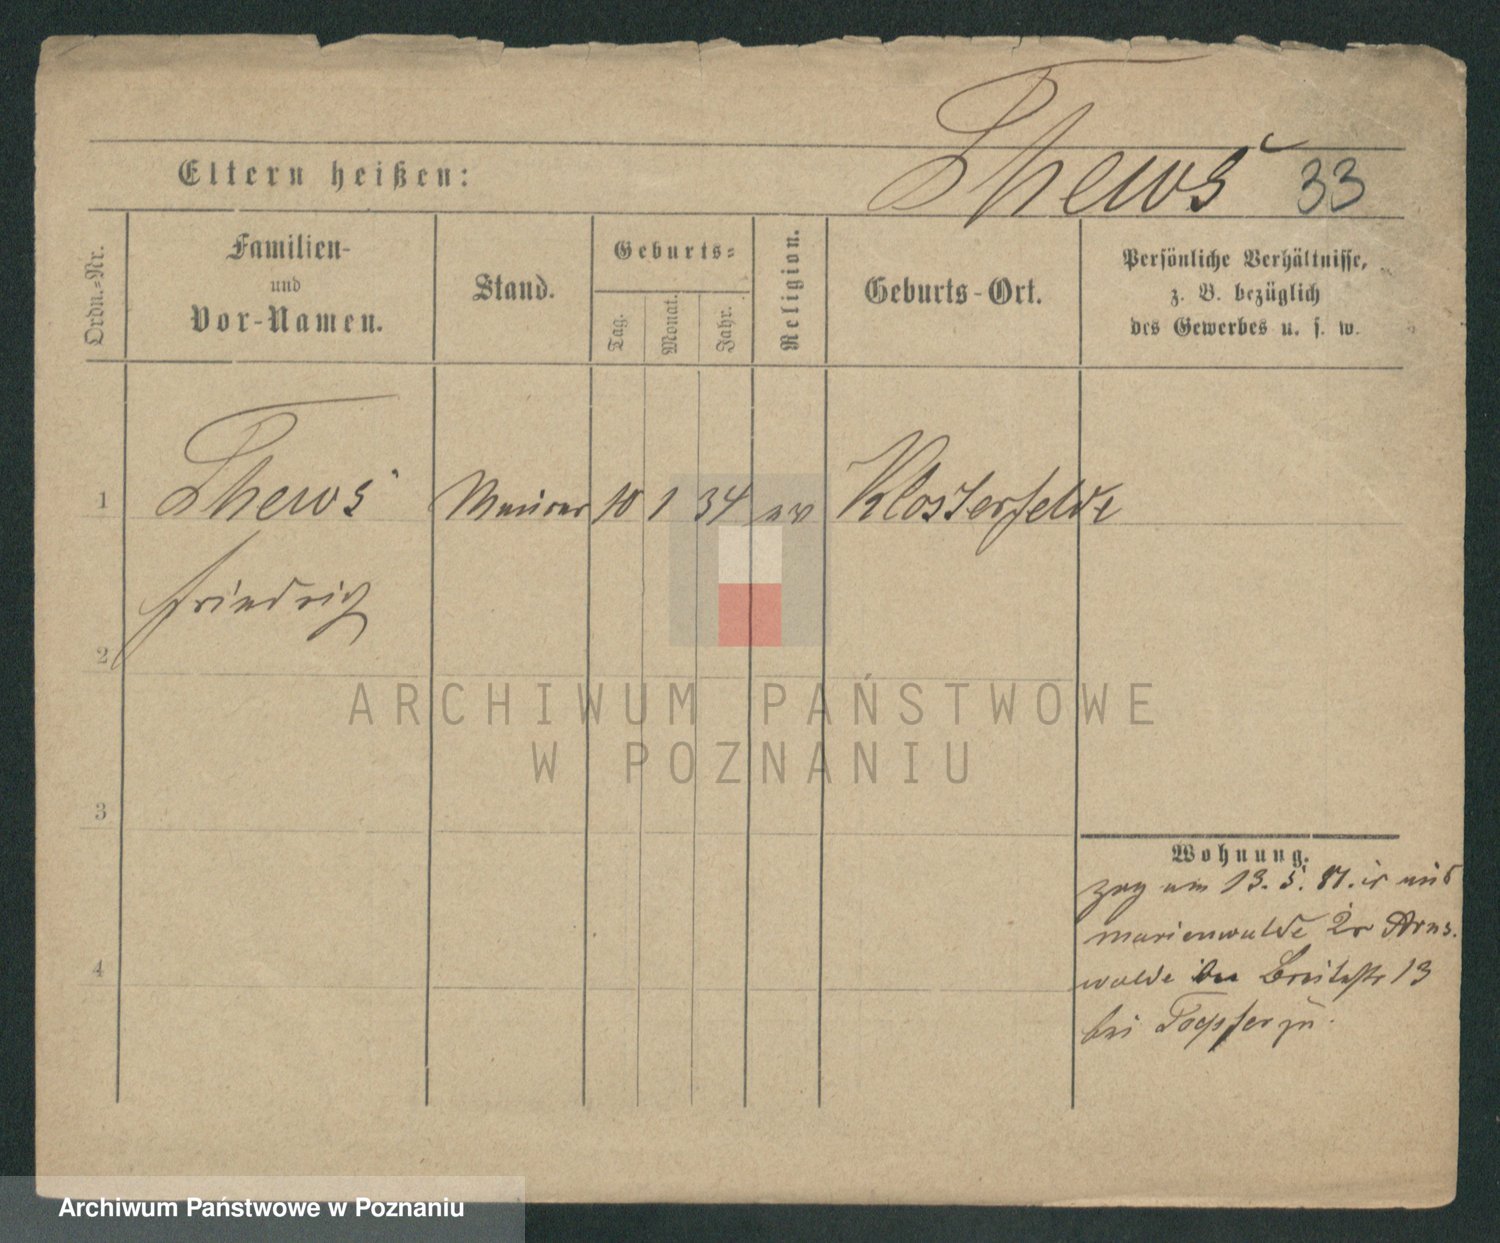 Thews 33
Eltern heißen:
Ordn.-Nr.
Familien-
und
Vor-Namen.
Stand.
Geburts-
Tag.
Monat.
Jahr.
Religion.
Geburts-Ort.
Persönliche Verhältnisse,
z. B. bezüglich
des Gewerbes u. s. w.
1 Thews Maurer 10 1 34 ev Klosterfelde
Friedrich
2
3
4
Wohnung.
zog am 13. 5. 81. aus
Marienwalde Arns-
walde Breitestr 13
bei Toepfer zu.
ARCHIWUM PAŃSTWOWE
W POZNANIU
Archiwum Państwowe w Poznaniu